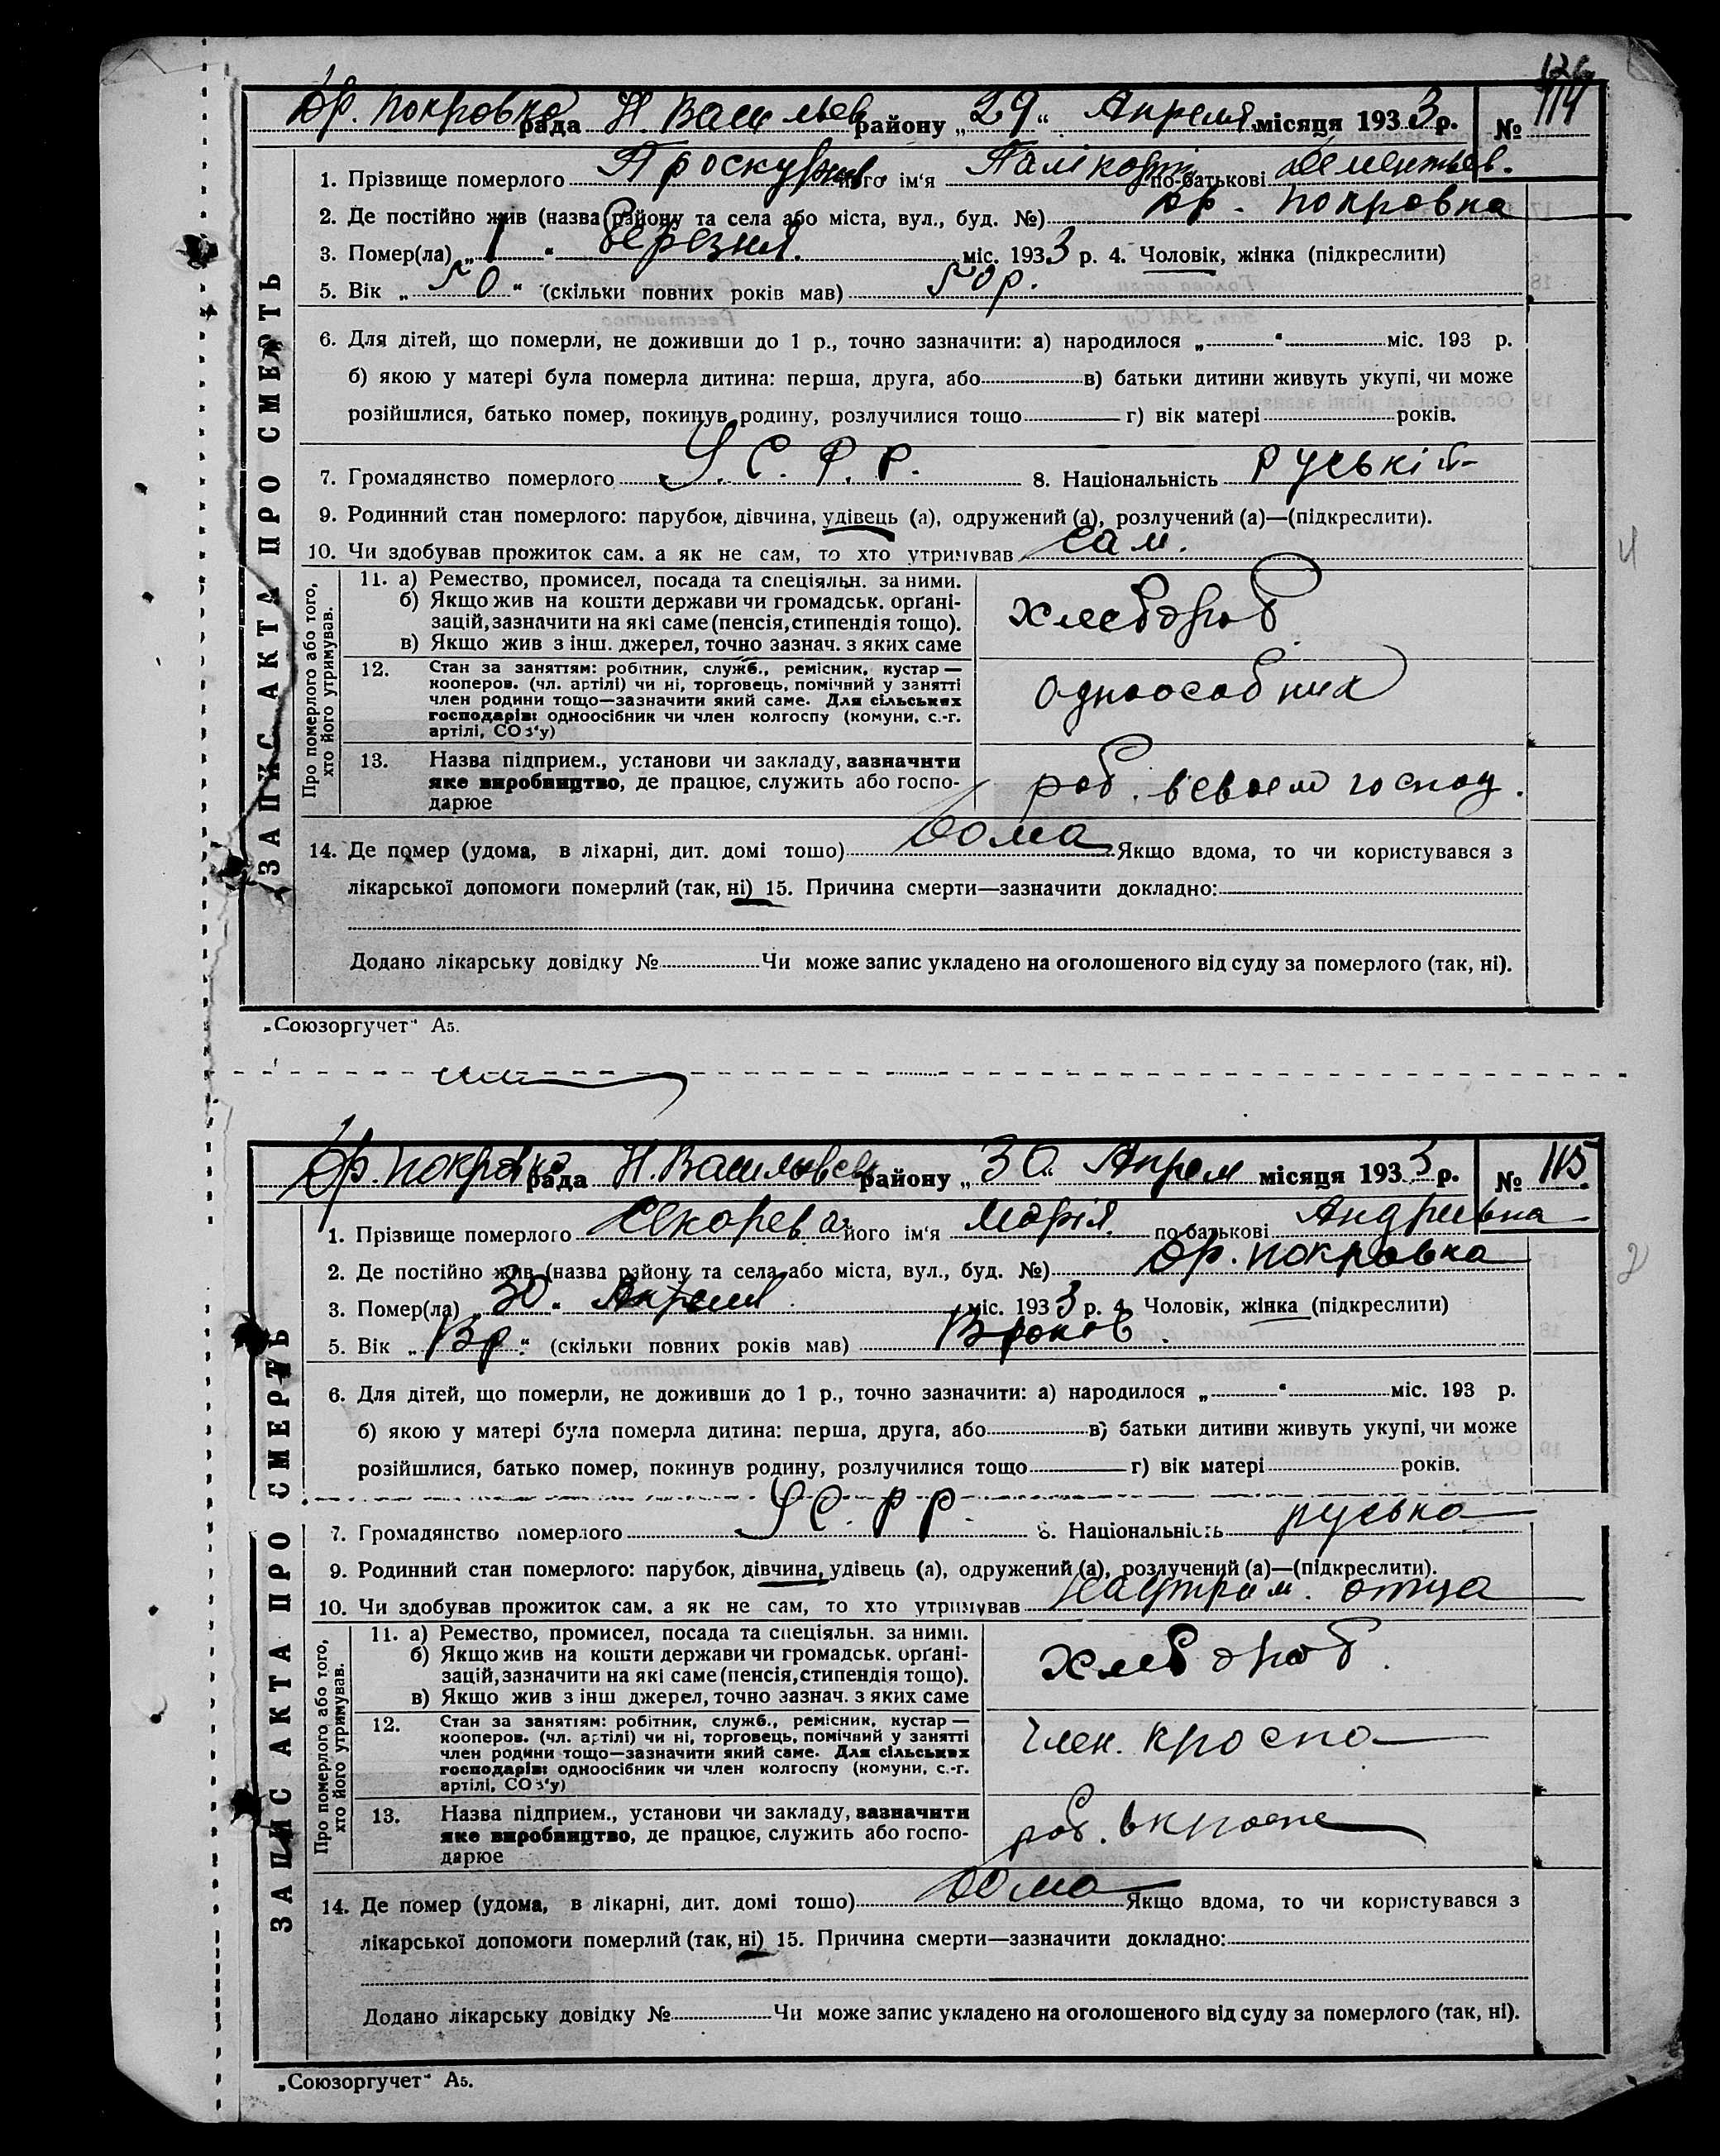 126
Ор. Покровка рада Н. Васильев району „29“ Апреля місяця 1933 р. № 114
1. Прізвище померлого Проскурнів його ім'я по-батькові Дементьев.
2. Де постійно жив (назва району та села або міста, вул., буд. №) Ор. Покровка
3. Помер(ла) „1“ березня. міс. 1933 р. 4. Чоловік, жінка (підкреслити)
5. Вік „50“ (скільки повних років мав) 50 р.
6. Для дітей, що померли, не доживши до 1 р., точно зазначити: а) народилося „ “ міс. 193 р.
б) якою у матері була померла дитина: перша, друга, або в) батьки дитини живуть укупі, чи може
розійшлися, батько помер, покинув родину, розлучилися тощо г) вік матері років.
7. Громадянство померлого У. С. Р. Р. 8. Національність руській
9. Родинний стан померлого: парубок, дівчина, удівець (а), одружений (а), розлучений (а)—(підкреслити).
10. Чи здобував прожиток сам. а як не сам, то хто утримував сам.
ЗАПИС АКТА ПРО СМЕРТЬ
Про померлого або того, хто його утримував.
11. а) Ремество, промисел, посада та спеціяльн. за ними.
б) Якщо жив на кошти держави чи громадськ. орґані-
зацій, зазначити на які саме (пенсія, стипендія тощо).
в) Якщо жив з інш. джерел, точно зазнач. з яких саме
хлебороб
12. Стан за заняттям: робітник, служб., ремісник, кустар—
кооперов. (чл. артілі) чи ні, торговець, помічний у занятті
член родини тощо—зазначити який саме. Для сільських
господарів: одноосібник чи член колгоспу (комуни, с.-г.
артілі, СОЗ'у)
одноособник
13. Назва підприєм., установи чи закладу, зазначити
яке виробництво, де працює, служить або госпо-
дарює
роб. всвоем господ.
14. Де помер (удома, в лікарні, дит. домі тощо) дома Якщо вдома, то чи користувався з
лікарської допомоги померлий (так, ні) 15. Причина смерти—зазначити докладно:
Додано лікарську довідку № Чи може запис укладено на оголошеного від суду за померлого (так, ні).
„Союзоргучет“ А5.
Ор. Покровка рада Н. Васильевск району „30“ Апрел місяця 1933 р. № 115
1. Прізвище померлого його ім'я Марія по-батькові Андріівна
2. Де постійно жив (назва району та села або міста, вул., буд. №) Ор. Покровка
3. Помер(ла) „30“ Апреля міс. 1933 р. 4. Чоловік, жінка (підкреслити)
5. Вік „ “ (скільки повних років мав) років.
6. Для дітей, що померли, не доживши до 1 р., точно зазначити: а) народилося „ “ міс. 193 р.
б) якою у матері була померла дитина: перша, друга, або в) батьки дитини живуть укупі, чи може
розійшлися, батько помер, покинув родину, розлучилися тощо г) вік матері років.
7. Громадянство померлого У С. Р Р. 8. Національність руська
9. Родинний стан померлого: парубок, дівчина, удівець (а), одружений (а), розлучений (а)—(підкреслити).
10. Чи здобував прожиток сам. а як не сам, то хто утримував наутрим. отца
ЗАПИС АКТА ПРО СМЕРТЬ
Про померлого або того, хто його утримував.
11. а) Ремество, промисел, посада та спеціяльн. за ними.
б) Якщо жив на кошти держави чи громадськ. орґані-
зацій, зазначити на які саме (пенсія, стипендія тощо).
в) Якщо жив з інш джерел, точно зазнач. з яких саме
хлебороб.
12. Стан за заняттям: робітник, служб., ремісник, кустар—
кооперов. (чл. артілі) чи ні, торговець, помічний у занятті
член родини тощо—зазначити який саме. Для сільських
господарів: одноосібник чи член колгоспу (комуни, с.-г.
артілі, СОЗ'у)
член.
13. Назва підприєм., установи чи закладу, зазначити
яке виробництво, де працює, служить або госпо-
дарює
роб.
14. Де помер (удома, в лікарні, дит. домі тощо) дома Якщо вдома, то чи користувався з
лікарської допомоги померлий (так, ні) 15. Причина смерти—зазначити докладно:
Додано лікарську довідку № Чи може запис укладено на оголошеного від суду за померлого (так, ні).
„Союзоргучет“ А5.